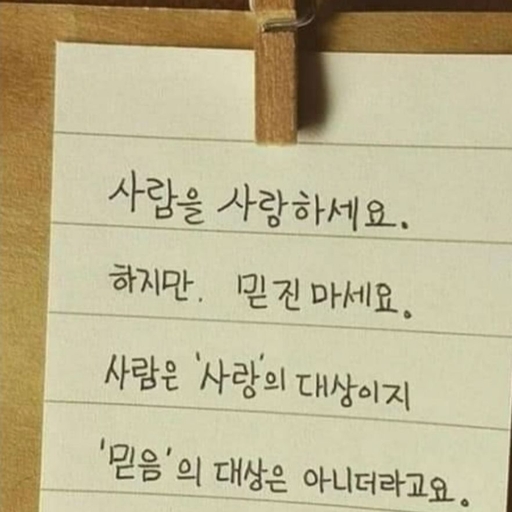 사람을 사랑하세요.
하지만. 믿진 마세요.
사람은 '사랑'의 대상이지
'믿음'의 대상은 아니더라고요.